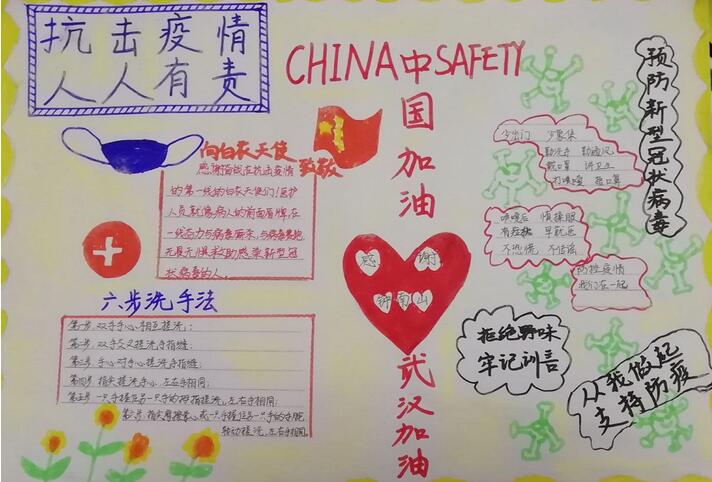 抗击疫情
人人有责
CHINA中SAFETY
国
加
油
武
汉
加
油
向白衣天使
致敬
感谢奋战在抗击疫情
的第一线的白衣天使们!医护
人员就像病人的前面盾牌,在
一线石力与病毒
无畏无惧救助感染新型冠
状病毒的人。
六步洗手法
第一步:双手手心相互搓洗;
第二步:双手交叉搓洗手指缝;
第三步:手心对手心搓洗手指缝;
第四步:指尖搓洗手心,左右手相同;
第五步:一只手握住另一只手的拇指搓洗,左右手相同;
第六步:指尖摩擦掌心或一只手握住另一只手的手腕
转动搓洗,左右手相同
感谢
钟南山
预防新型冠状病毒
少出门 少聚集
勤洗手 勤通风
戴口罩 讲卫生
打喷嚏 捂口鼻
喷嚏后 慎揉眼
有症状 早就医
不恐慌 不信谣
防控疫情
我们在一起
拒绝野味
牢记训言
从我做起
支持防疫